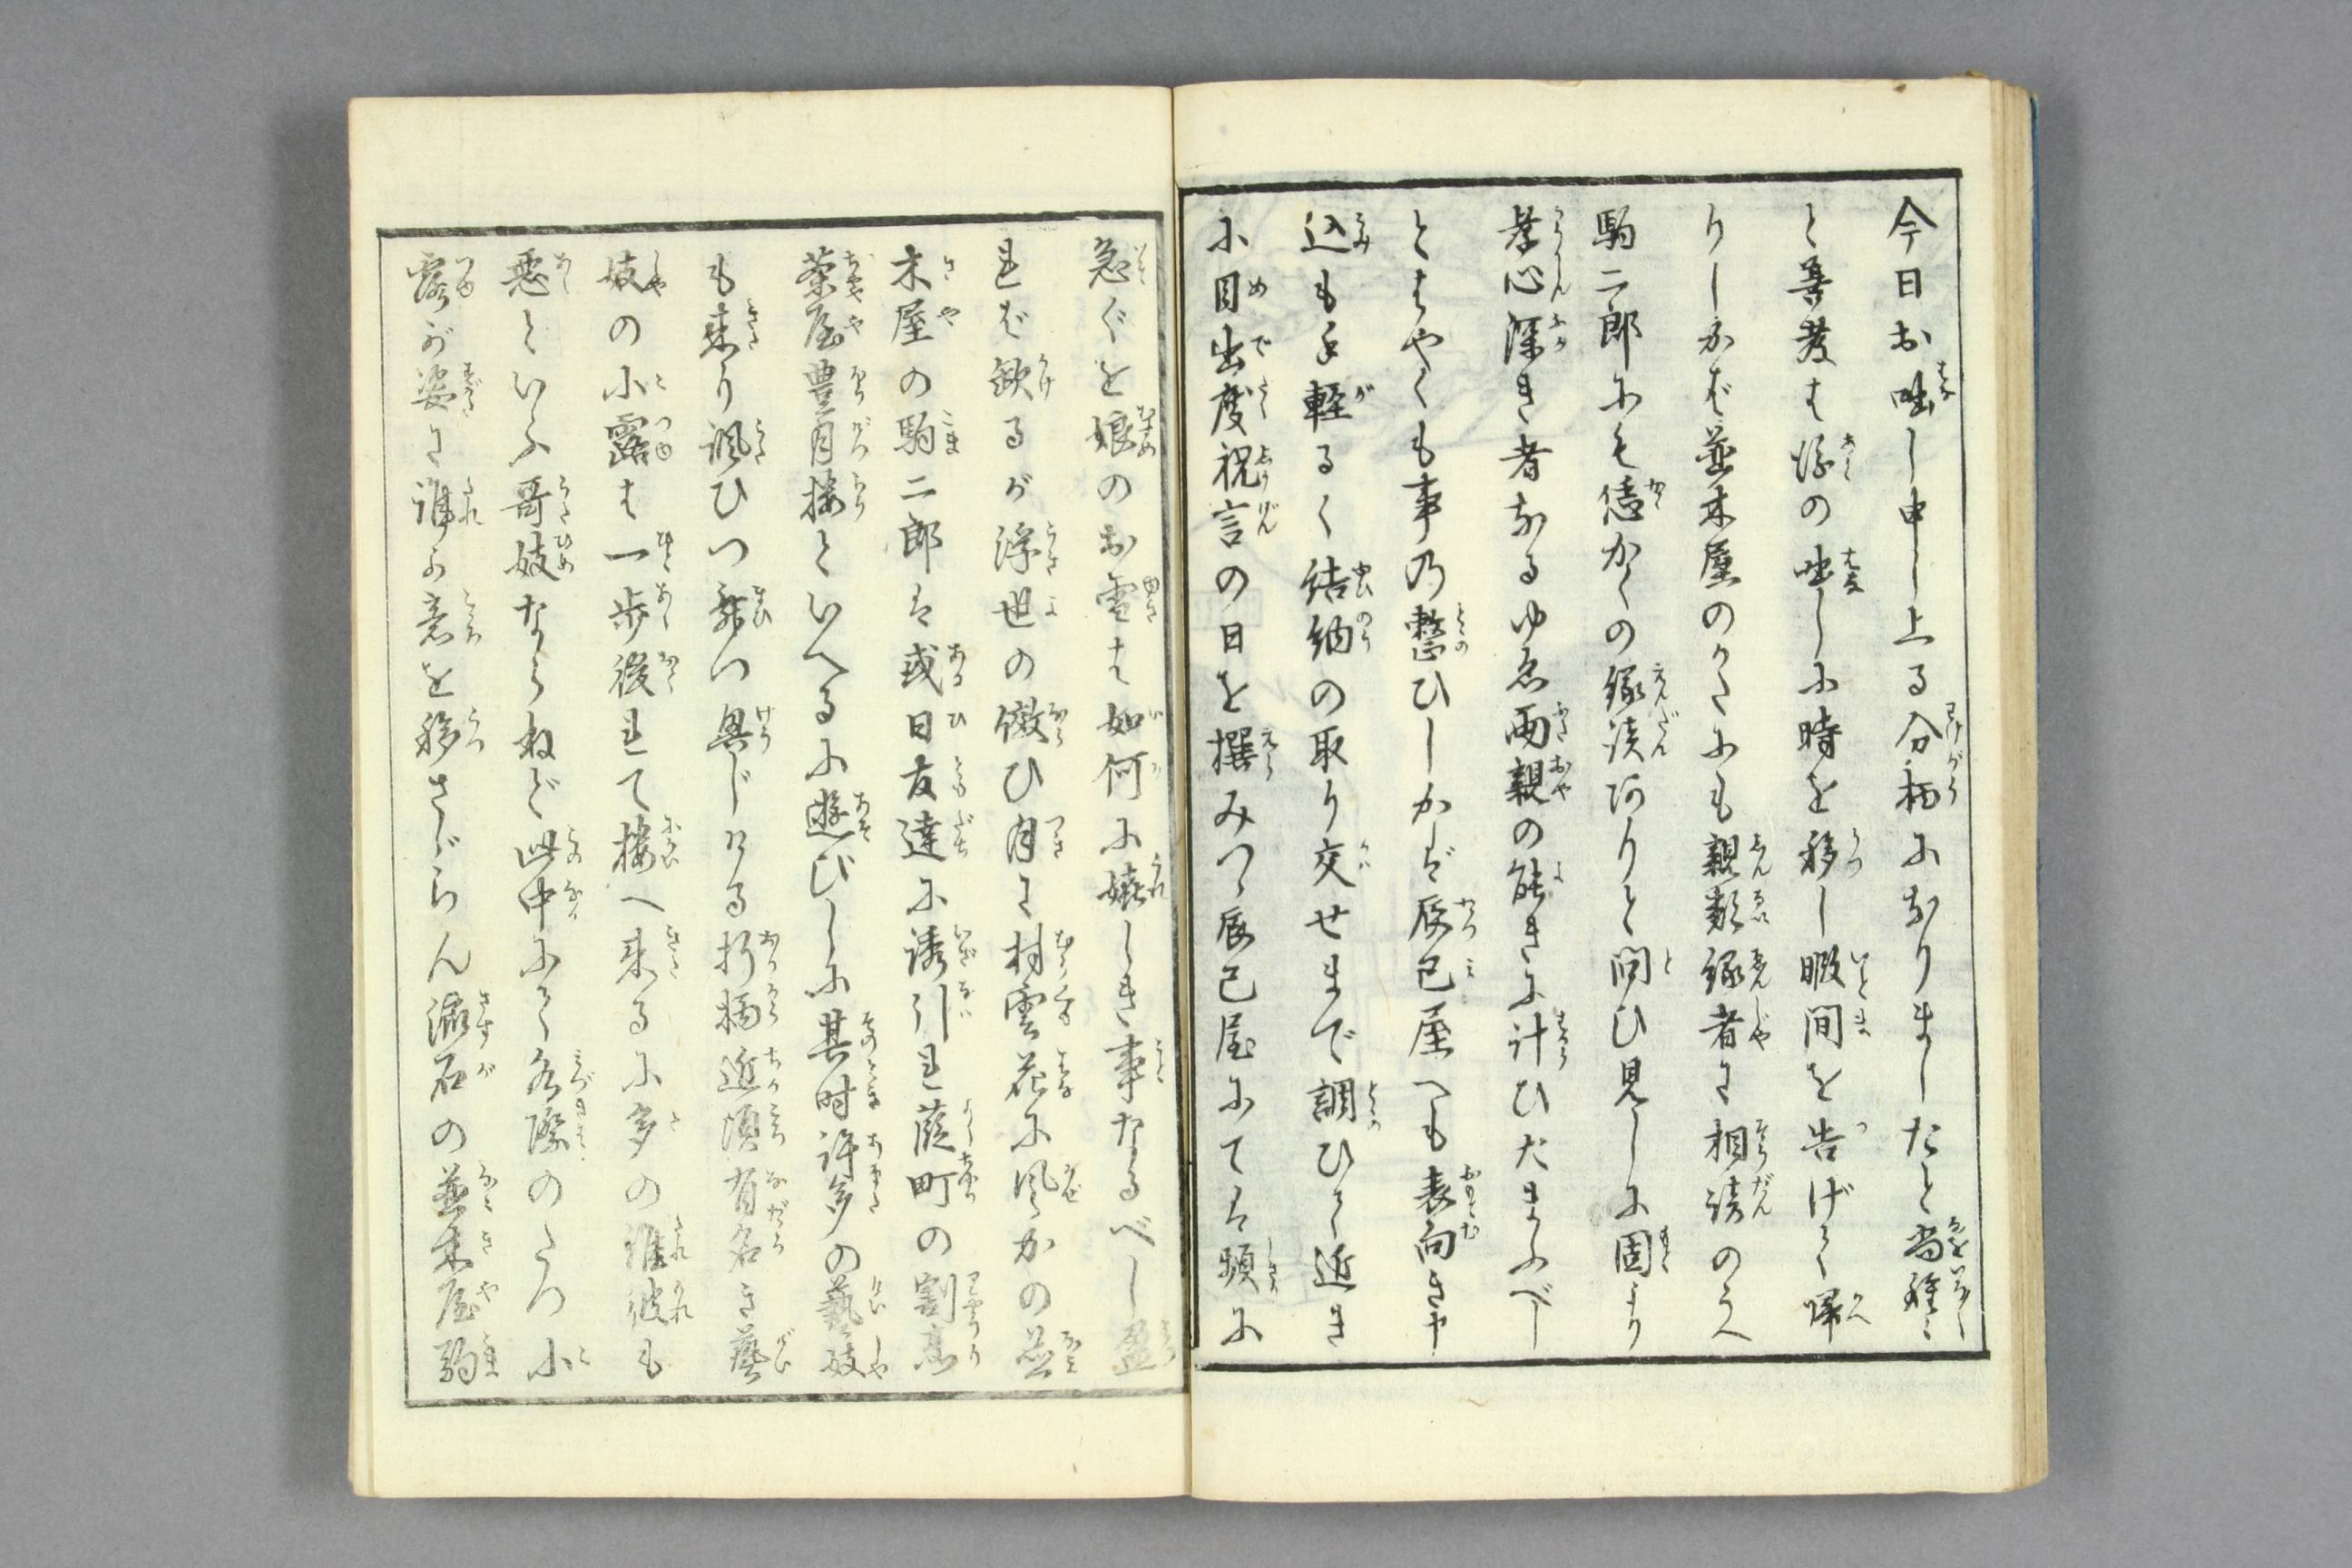 今日お咄し申し上る分柄になりましたと尚種々
と善孝は深の咄しに時を移し暇間を告げて帰
りしかば並木屋のかたにも親類縁者に相談のうへ
駒二郎にも恁かくの縁談ありと問ひ見しに固より
孝心深き者なるゆゑ両親の能きに計ひたまふべし
とはやくも事の整ひしかば辰巳屋へも表向きや
込も手軽るく結納の取り交せまで調ひて近き
に目出度祝言の日を撰みつゝ辰巳屋にては頻に
急ぐを娘のお雪は如何に嬉しき事なるべし盈
れば欠るが浮世の傚ひ月に村雲花に風かの並
木屋の駒二郎は或日友達に誘引れ葭町の割烹
茶屋豊月楼といへるに遊びしに其時許多の藝妓
も来り諷ひつ舞つ興じける折柄近頃有名き藝
妓の小露は一歩後れて楼へ来るに多の誰彼も
悪といふ哥妓ならねど此中にて水際のたつ小
露が姿に誰か意を移さゞらん流石の並木屋駒